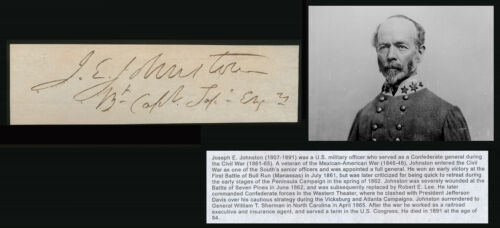 J. E. Johnston
Bt Capt. Top. Eng.rs
Joseph E. Johnston (1807-1891) was a U.S. military officer who served as a Confederate general during
the Civil War (1861-65). A veteran of the Mexican-American War (1846-48), Johnston entered the Civil
War as one of the South's senior officers and was appointed a full general. He won an early victory at the
First Battle of Bull Run (Manassas) in July 1861, but was later criticized for being quick to retreat during
the early stages of the Peninsula Campaign in the spring of 1862. Johnston was severely wounded at the
Battle of Seven Pines in June 1862, and was subsequently replaced by Robert E. Lee. He later
commanded Confederate forces in the Western Theater, where he clashed with President Jefferson
Davis over his cautious strategy during the Vicksburg and Atlanta Campaigns. Johnston surrendered to
General William T. Sherman in North Carolina in April 1865. After the war he worked as a railroad
executive and insurance agent, and served a term in the U.S. Congress. He died in 1891 at the age of
84.